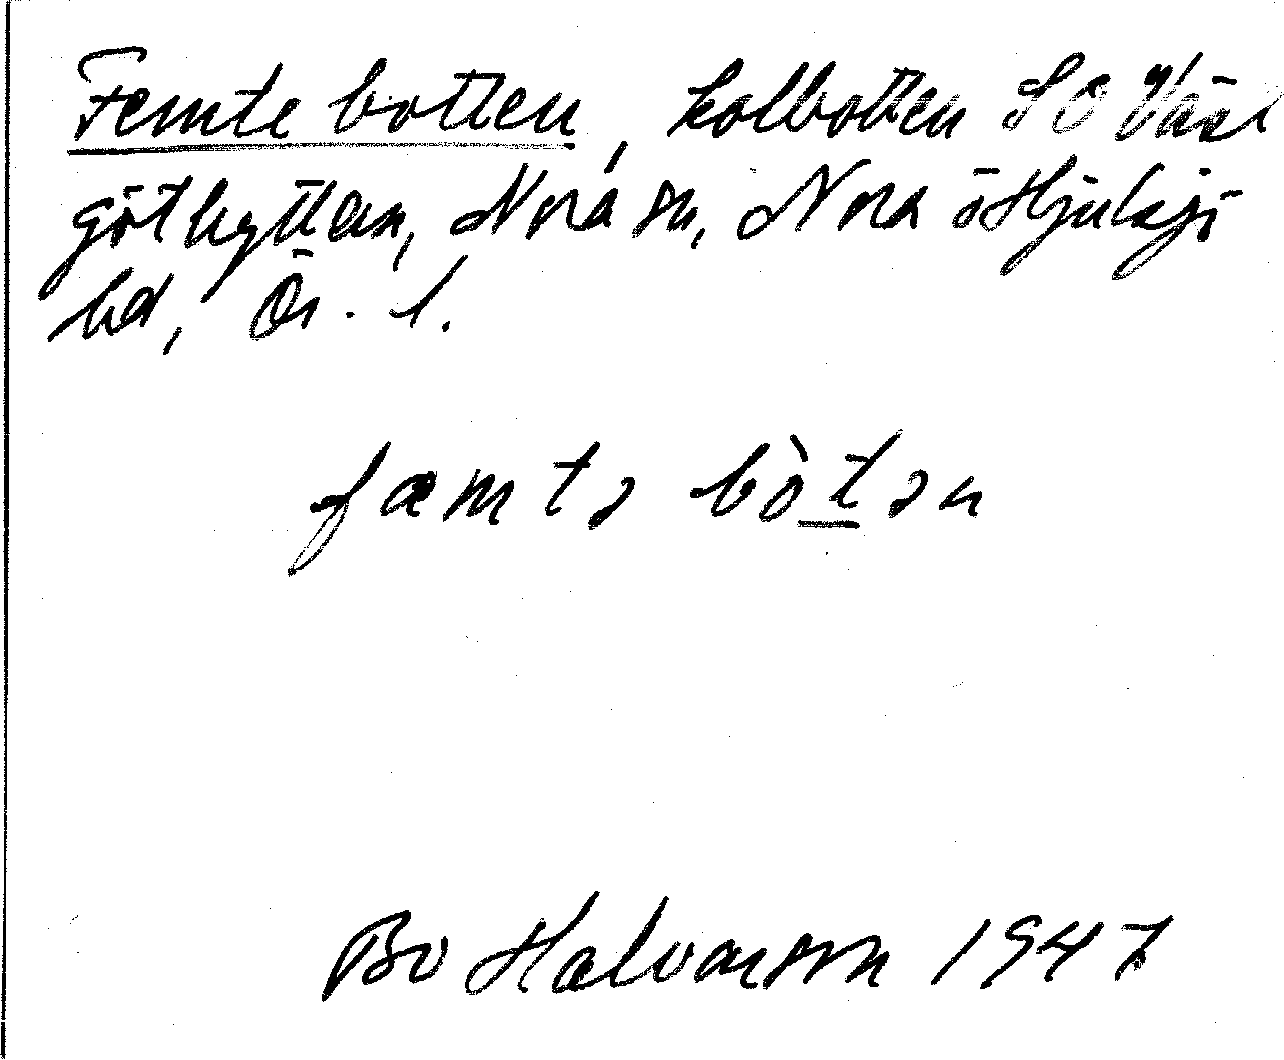 Femte botten, kolbotten SÖ Väst
göthyttan, Nora sn, Nora o Hjulsjö
bd, Ör. l.
fæmtə bòtən
Bo Halvarson 1947